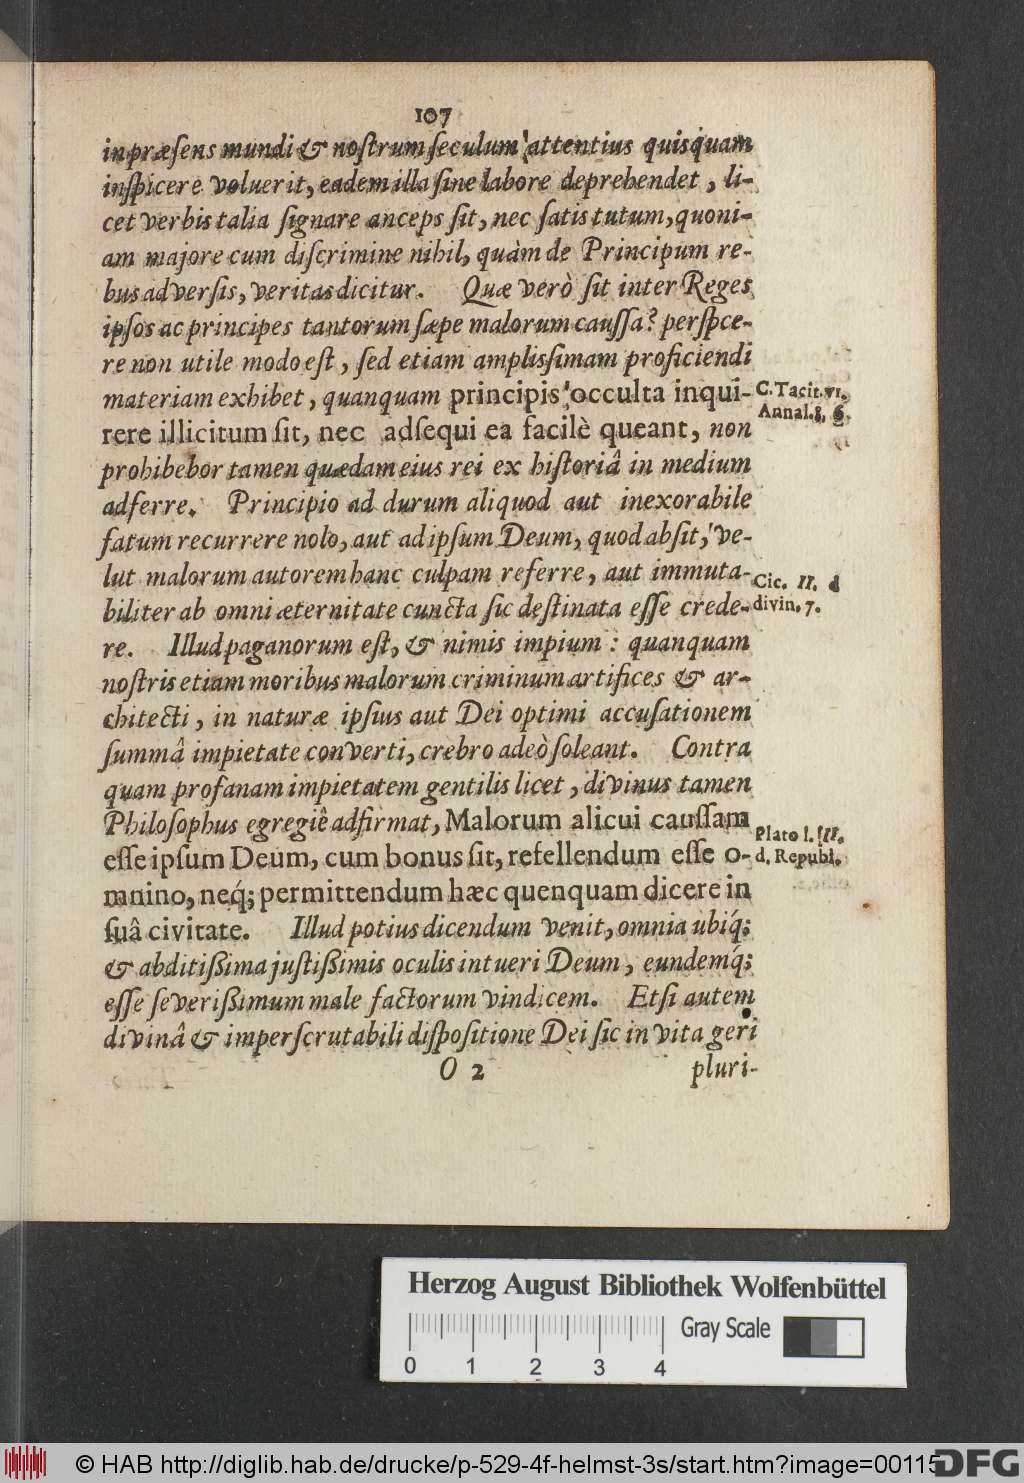 107
in præsens mundi & nostrum seculum attentius quisquam
inspicere voluerit, eadem illa sine labore deprehendet, li-
cet verbis talia signare anceps sit, nec satis tutum, quoni-
am majore cum discrimine nihil, quàm de Principum re-
bus adversis, veritas dicitur. Quæ verò sit inter Reges
ipsos ac principes tantorum sæpe malorum caussa? perspce-
re non utile modo est, sed etiam amplissimam proficiendi
materiam exhibet, quanquam principis occulta inqui-
rere illicitum sit, nec adsequi ea facilè queant, non
prohibebor tamen quædam eius rei ex historiâ in medium
adferre. Principio ad durum aliquod aut inexorabile
fatum recurrere nolo, aut ad ipsum Deum, quod absit, ve-
lut malorum autorem hanc culpam referre, aut immuta-
biliter ab omni æternitate cuncta sic destinata esse crede-
re. Illud paganorum est, & nimis impium: quanquam
nostris etiam moribus malorum criminum artifices & ar-
chitecti, in naturæ ipsius aut Dei optimi accusationem
summâ impietate converti, crebro adeò soleant. Contra
quam profanam impietatem gentilis licet, divinus tamen
Philosophus egregiê adfirmat, Malorum alicui caussam
esse ipsum Deum, cum bonus sit, refellendum esse o-
mnino, neq́; permittendum hæc quenquam dicere in
suâ civitate. Illud potius dicendum venit, omnia ubiq́;
& abditißima justißimis oculis intueri Deum, eundemq́;
esse severißimum male factorum vindicem. Etsi autem
divinâ & imperscrutabili dispositione Dei sic in vita geri
O 2 pluri-
C. Tacit. vi.
Annal. 8. 6.
Cic. II. d
divin. 7.
Plato l. III.
d. Republ.
Herzog August Bibliothek Wolfenbüttel
Gray Scale
0 1 2 3 4
© HAB http://diglib.hab.de/drucke/p-529-4f-helmst-3s/start.htm?image=00115
DFG